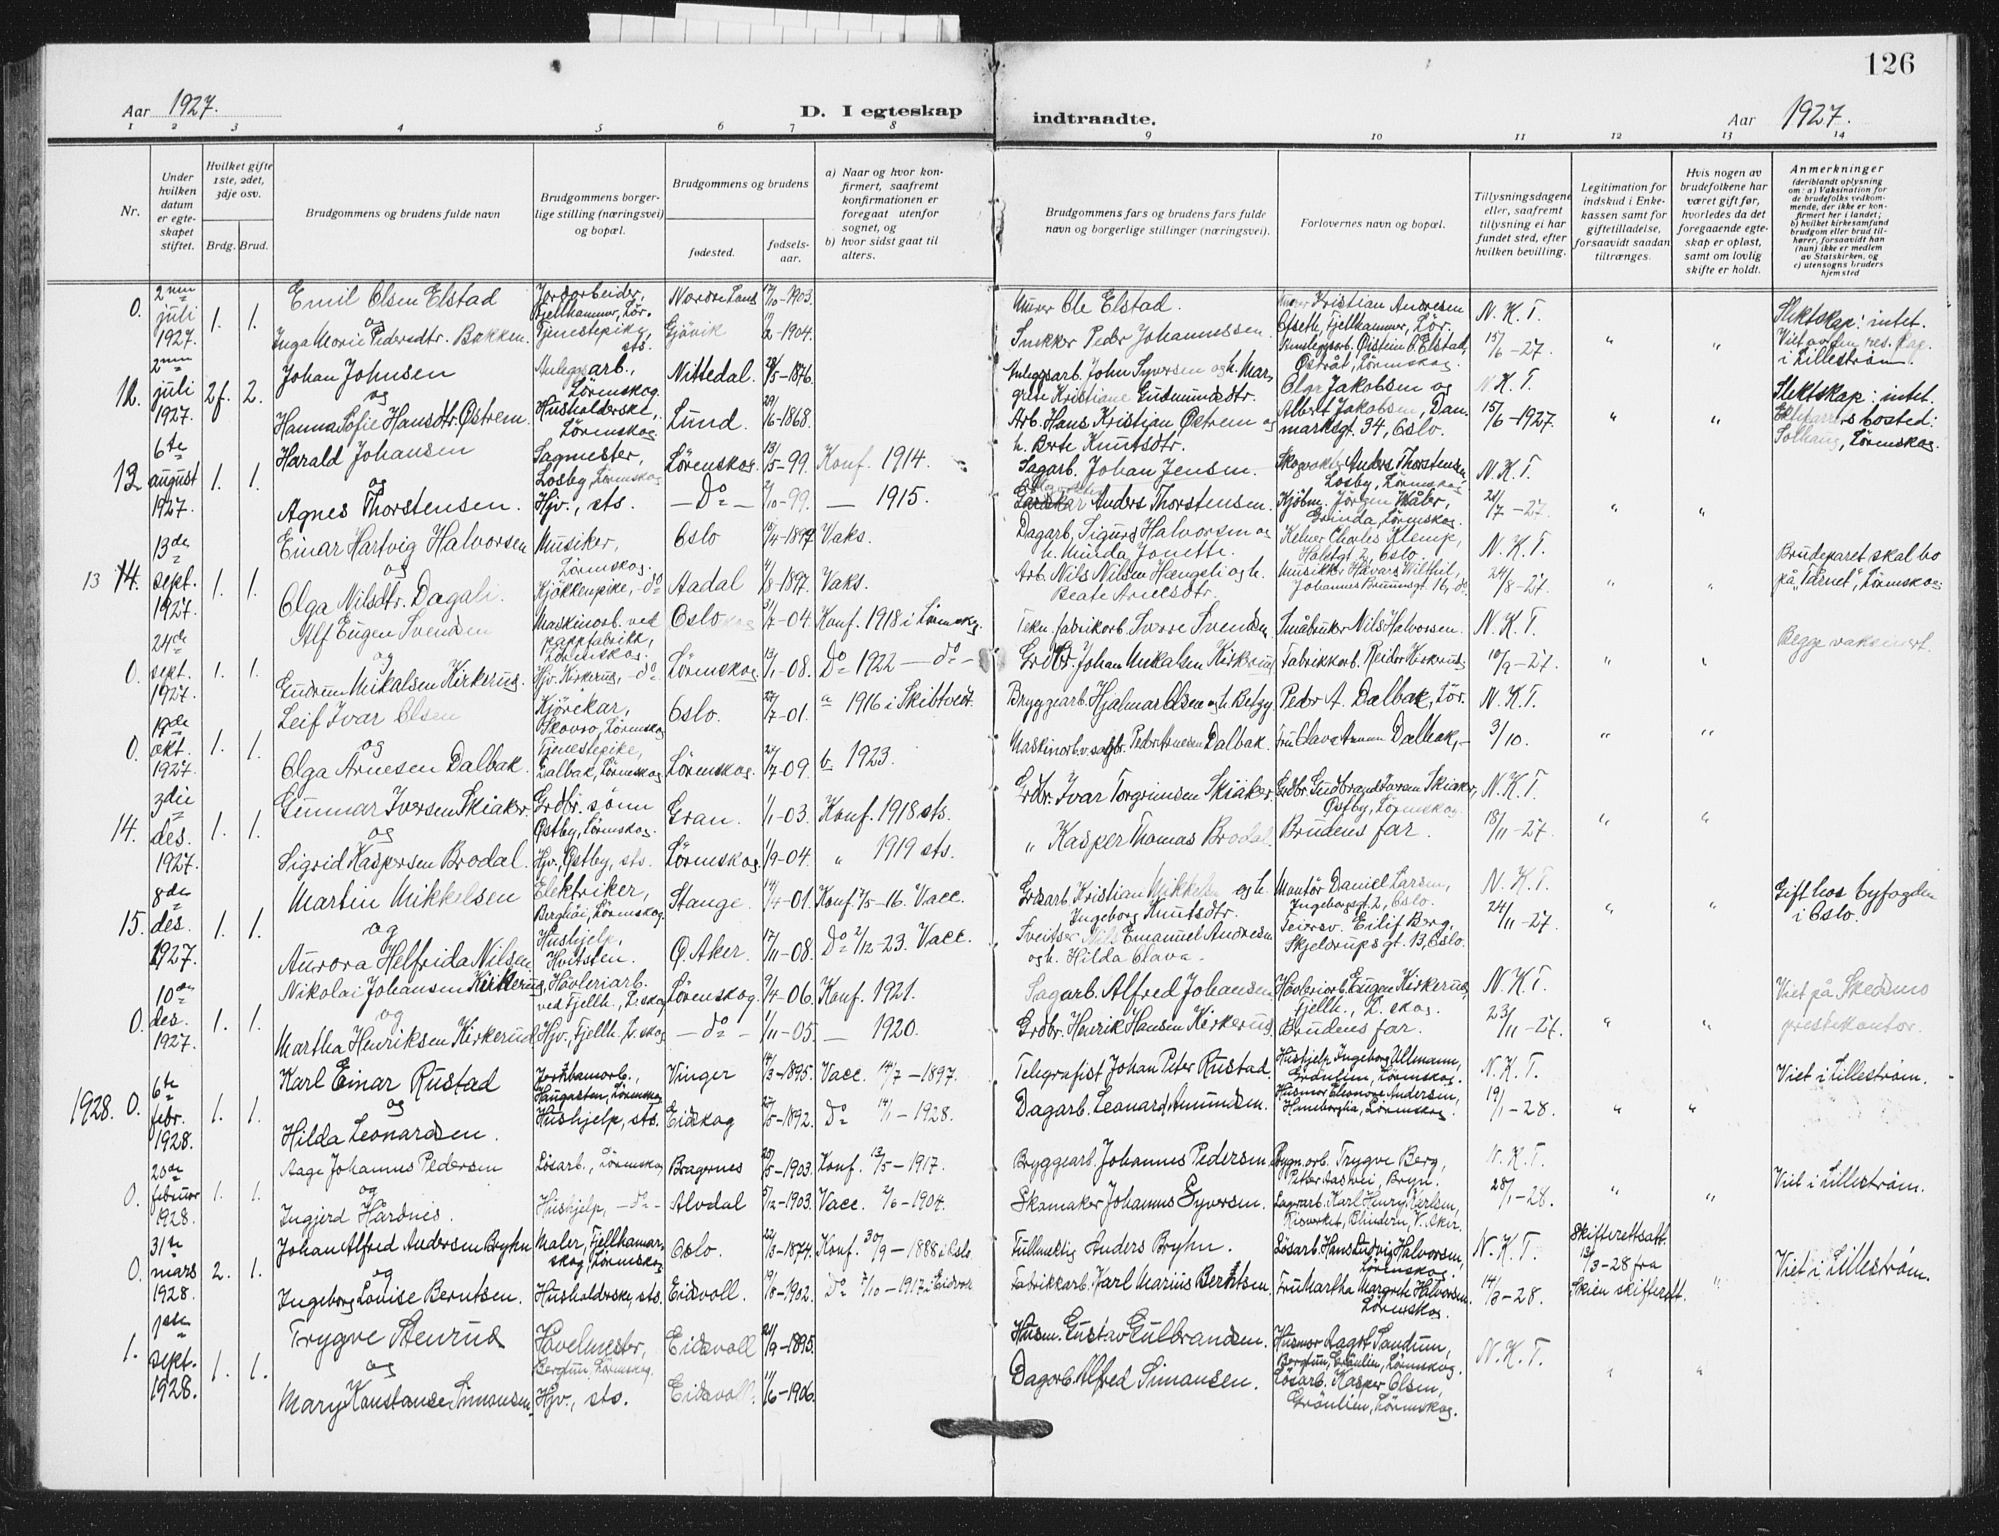 126
Aar 1927.
D. I egteskap
indtraadte.
Aar 1927.
1 2 3 4 5 6 7 8 9 10 11 12 13 14
Nr.
Under hvilken datum er egteskapet stiftet.
Hvilket gifte 1ste, 2det, 3dje osv.
Brdg. Brud.
Brudgommens og brudens fulde navn
Brudgommens borgerlige stilling (næringsvei) og bopæl.
Brudgommens og brudens
fødested.
fødselsaar.
a) Naar og hvor konfirmert, saafremt konfirmationen er foregaat utenfor sognet, og
b) hvor sidst gaat til alters.
Brudgommens fars og brudens fars fulde navn og borgerlige stillinger (næringsvei).
Forlovernes navn og bopæl.
Tillysningsdagene eller, saafremt tillysning ei har fundet sted, efter hvilken bevilling.
Legitimation for indskud i Enkekassen samt for giftetilladelse, forsaavidt saadan tiltrænges.
Hvis nogen av brudefolkene har været gift før, hvorledes da det foregaaende egteskap er opløst, samt om lovlig skifte er holdt.
Anmerkninger
(deriblandt oplysning om: a) Vaksination for brudefolks vedkommende, der ikke er konfirmert her i landet; b) hvilket kirkesamfund brudgom eller brud tilhører, forsaavidt han (hun) ikke er medlem av Statskirken, og c) utensogns bruders hjemsted
0. 2nen juli 1927. 1. 1.
Emil Olsen Elstad Jordarbeider, Fjellhammer, Lør. Nordre Land 17/10-1903. Murer Ole Elstad. Kristian Andresen Ofseth, Fjellhammer, Lør. N.K.T. Slektskap: intet.
og
Inga Marie Pedersdtr. Bakken. Tjenestepike, sts. Gjövik 2-1904. Snekker Peder Johannessen Øistein O. Elstad, Østråt, Lörenskog. 15/6-27. " " Viet av res. kap. i Lillestrøm.
12. 2nen juli 1927. 2f. 2.
Johan Johnsen Anleggsarb., Lörenskog. Nittedal. 28/5-1876. Anleggsarb. John Syversen og h. Margrete Kristiane Gudmundsdtr. Olga Jakobsen og N.K.T. Slektskap: intet.
og
Hanna Sofie Hansdtr. Østrem Husholderske, Lörenskog Lund. 29/6-1868. Arb. Hans Kristian Østrem og h. Berte Knutsdtr. Albert Jakobsen, Danmarksgt. 34, Oslo. 15/6-1927. " " Ekteparrets bosted: Solhaug, Lörenskog.
13. 6te august 1927. 1. 1.
Harald Johansen Sagmester, Losby, Lörenskog Lörenskog. 13/5-99. Konf. 1914. Sagarb. Johan Jensen. Skogvakter Anders Thorstensen, Losby, Lörenskog N.K.T.
og
Agnes Thorstensen. Hjv., sts. — Do — /10-99. — 1915. Anders Thorstensen. Kjøbm. Jörgen Kåber, Grinda, Lörenskog. 21/7-27. " "
13 14. 13de sept. 1927. 1. 1.
Einar Hartvig Halvorsen Musiker, Lörenskog. Oslo /4-1897 Vaks. Dagarb. Sigurd Halvorsen og h. Minda Jonette. Kelner Charles Klemp, Holstgt. 2, Oslo. N.K.T. Brudeparet skal bo
og
Olga Nilsdtr. Dagali. Kjøkkenpike, - do Aadal /8-1897. Vaks. Arb. Nils Nilsen Hængsli og h. Beate Arnesdtr. Musikker Håvard Wilthil, Johannes Bruunsgt. 16, do. 24/8-27. " " på "Tårnet", Lörenskog.
0. 24de sept. 1927. 1. 1.
Alf Eugen Svendsen Maskinarb. ved pappfabrikk, Lörenskog. Oslo 31/7-04. Konf. 1918 i Lörenskog. Tekn. fabrikarb. Sverre Svendsen Småbruker Nils Halvorsen. N.K.T. Begge vaksinert.
og
Gudrun Mikalsen Kirkerud. Hjv. Kirkerud, - do. Lörenskog. 13/1-08. Do 1922 — do — Grdbr. Johan Mikalsen Kirkerud Fabrikkarb. Reidar Kirkerud. 10/9-27. " "
0. 19de okt. 1927. 1. 1.
Leif Ivar Olsen Kjörekar, Skovro, Lörenskog Oslo. 27/7-01. a 1916 i Skiptvedt. Bryggearb. Hjalmar Olsen og h. Betzy Peder A. Dalbak, Lör. N.K.T.
og
Olga Arnesen Dalbak. Tjenestepike, Dalbak, Lörenskog Lörenskog. 24/7-09. b 1923. Maskinarb. v. sagbr. Peder Arnesen Dalbak. Fru Olava Arnesen Dalbak, — 3/10. " "
14. 3die des. 1927. 1. 1.
Gunnar Iversen Skiaker Grdbr. sönn Østby, Lörenskog. Gran. 1/1-03. Konf. 1918 sts. Grdbr. Ivar Torgrimsen Skiaker. Grdbr. Gudbrand Iversen Skiaker, Østby, Lörenskog N.K.T.
og
Sigrid Kaspersen Brodal. Hjv. Østby, sts. Lörenskog. 1/9-04. " 1919 sts. " Kasper Thomas Brodal. Brudens far. 18/11-27. " "
15. 8de des. 1927. 1. 1.
Martin Mikkelsen Elektriker, Berghöi, Lörenskog. Stange. 14/4-01. Konf. 7/5-16. Vacc. Grdsarb. Kristian Mikkelsen og h. Ingeborg Knutsdtr. Montör Daniel Larsen, Ingeborgsgt. 2, Oslo. N.K.T. Gift hos byfogden i Oslo.
og
Aurora Helfrida Nilsen Hushjelp, Hvitsten. Ø. Aker. 17/11-08. Do 2/12-23. Vacc. Sveitser Nils Emanuel Andresen og h. Hilda Olava. Feiersv. Eilif Berg, Skjeldrupsgt. 13, Oslo. 24/11-27. " "
0. 10de des. 1927. 1. 1.
Nikolai Johansen Kirkerud, Hövleriarb. ved Fjellh., L.skog Lörenskog. 9/4-06. Konf. 1921. Sagarb. Alfred Johansen. Hövleriarb. Eugen Kirkerud, Fjellh., L.skog. N.K.T. Viet på Skedsmo
og
Martha Henriksen Kirkerud. Hjv., Fjellh., L.skog — do — 1/11-05. — 1920. Grdbr. Henrik Hansen Kirkerud. Brudens far. 23/11-27. " " prestekontor.
1928. 0. 6te febr. 1928. 1. 1.
Karl Einar Rustad Jernbanearb., Haugasten, Lörenskog Vinger 14/3-1895. Vacc. 14/7-1897. Telegrafist Johan Peter Rustad. Hushjelp Ingeborg Ullmann, Grönlien, Lörenskog. N.K.T. Viet i Lillestrøm.
og
Hilda Leonardsen. Hushjelp, sts. Eidskog 25/5-1892. Do 14/1-1928. Dagarb. Leonard Amundsen. Husmor Eleonore Andersen, Haneborglia, Lörenskog. 19/1-28. " "
0. 20de februar 1928. 1. 1.
Aage Johannes Pedersen Lösarb., Lörenskog Bragernes 25/5-1903. Konf. 13/5-1917. Bryggearb. Johannes Pedersen. Bygn.arb. Trygve Berg, Petter Aas vei, Bryn. N.K.T. Viet i Lillestrøm.
og
Ingjerd Hårdnes. Hushjelp, — do — Alvdal 5/12-1903. Vacc. 2/6-1904. Skomaker Johannes Syversen. Lagerarb. Karl Henry Karlsen, Risverket, Blindern, V. Aker. 28/1-28. " "
0. 31te mars 1928. 2. 1.
Johan Alfred Andersen Bryhn Maler, Fjellhamarskog, Lörenskog Oslo. 22/3-1874. Konf. 30/9-1888 i Oslo Fullmektig Anders Bryhn. Lösarb. Hans Ludvig Halvorsen, Lörenskog. N.K.T. Skifterettsatt. 13/3-28 fra Viet i Lillestrøm.
og
Ingeborg Louise Berntsen. Husholderske, sts. Eidsvoll. 19/8-1902. Do 7/10-1917 i Eidsvoll Fabrikkarb. Karl Marius Berntsen. Fru Martha Margrete Halvorsen, Lörenskog. 14/3-28. Skien skifterett. "
1. 1ste sept. 1928. 1. 1.
Trygve Stenrud Høvelmester, Bergtun, Lörenskog. Eidsvoll 21/9-1895. Husm. Gustav Gulbrandsen. Husmor Dagot Sandum, Bergtun, Grönlien, Lörenskog. N.K.T.
og
Mary Konstanse Simonsen. Hjv., sts. Eidsvoll. 11/6-1906. Dagarb. Alfred Simonsen. Lösarb. Kasper Olsen, Grönlien, Lörenskog. " "